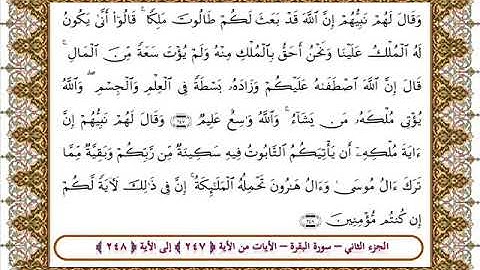 وَقَالَ لَهُمْ نَبِيُّهُمْ إِنَّ ٱللَّهَ قَدْ بَعَثَ لَكُمْ طَالُوتَ مَلِكًا ۚ قَالُوٓا۟ أَنَّىٰ يَكُونُ
لَهُ ٱلْمُلْكُ عَلَيْنَا وَنَحْنُ أَحَقُّ بِٱلْمُلْكِ مِنْهُ وَلَمْ يُؤْتَ سَعَةً مِّنَ ٱلْمَالِ ۚ
قَالَ إِنَّ ٱللَّهَ ٱصْطَفَىٰهُ عَلَيْكُمْ وَزَادَهُۥ بَسْطَةً فِى ٱلْعِلْمِ وَٱلْجِسْمِ ۖ وَٱللَّهُ
يُؤْتِى مُلْكَهُۥ مَن يَشَآءُ ۚ وَٱللَّهُ وَٰسِعٌ عَلِيمٌ ﴿٢٤٧﴾ وَقَالَ لَهُمْ نَبِيُّهُمْ إِنَّ
ءَايَةَ مُلْكِهِۦٓ أَن يَأْتِيَكُمُ ٱلتَّابُوتُ فِيهِ سَكِينَةٌ مِّن رَّبِّكُمْ وَبَقِيَّةٌ مِّمَّا
تَرَكَ ءَالُ مُوسَىٰ وَءَالُ هَٰرُونَ تَحْمِلُهُ ٱلْمَلَٰٓئِكَةُ ۚ إِنَّ فِى ذَٰلِكَ لَءَايَةً لَّكُمْ
إِن كُنتُم مُّؤْمِنِينَ ﴿٢٤٨﴾
الجزء الثاني – سورة البقرة – الآيات من الآية ﴿٢٤٧﴾ إلى الآية ﴿٢٤٨﴾